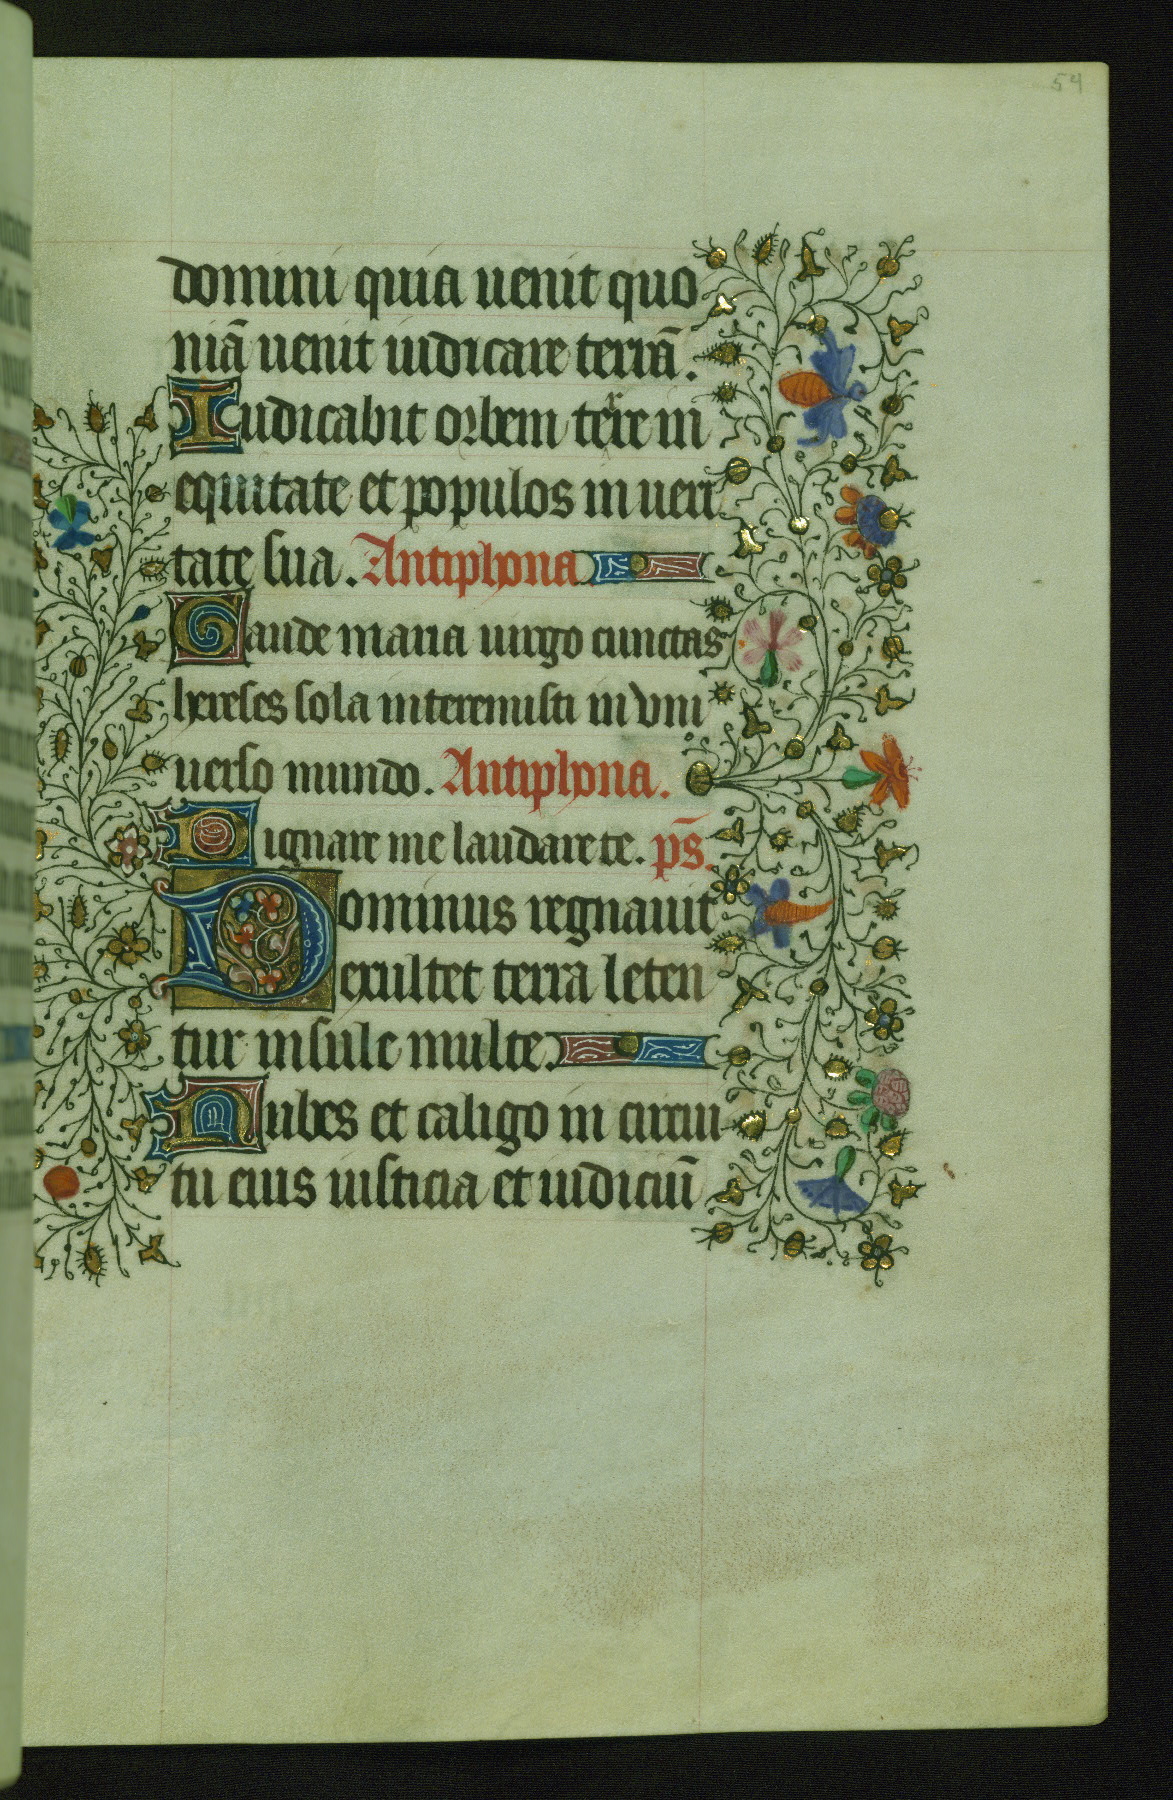 54
domini quia uenit quo
niā uenit iudicare terrā.
Iudicabit orbem terre in
equitate et populos in ueri
tate sua. Antiphona
Gaude maria uirgo cunctas
hereses sola interemisti in vni
uerso mundo. Antiphona.
Dignare me laudare te. ps̄.
Dominus regnauit
exultet terra leten
tur insule multe.
Nubes et caligo in circui
tu eius iusticia et iudiciū